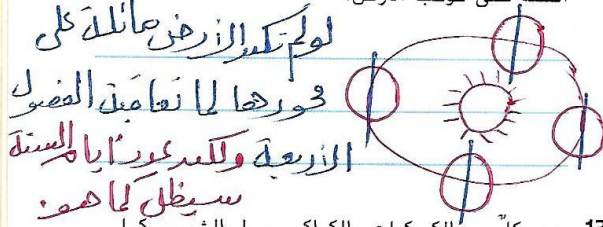 لو لم تكن الأرض مائلة على
محورها لما تعاقبت الفصول
الأربعة ولكن عدد أيام السنة
سيظل كما هو.